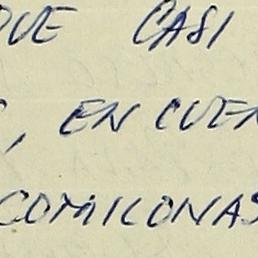 QUE CASI
, EN CUEN
COMILONAS